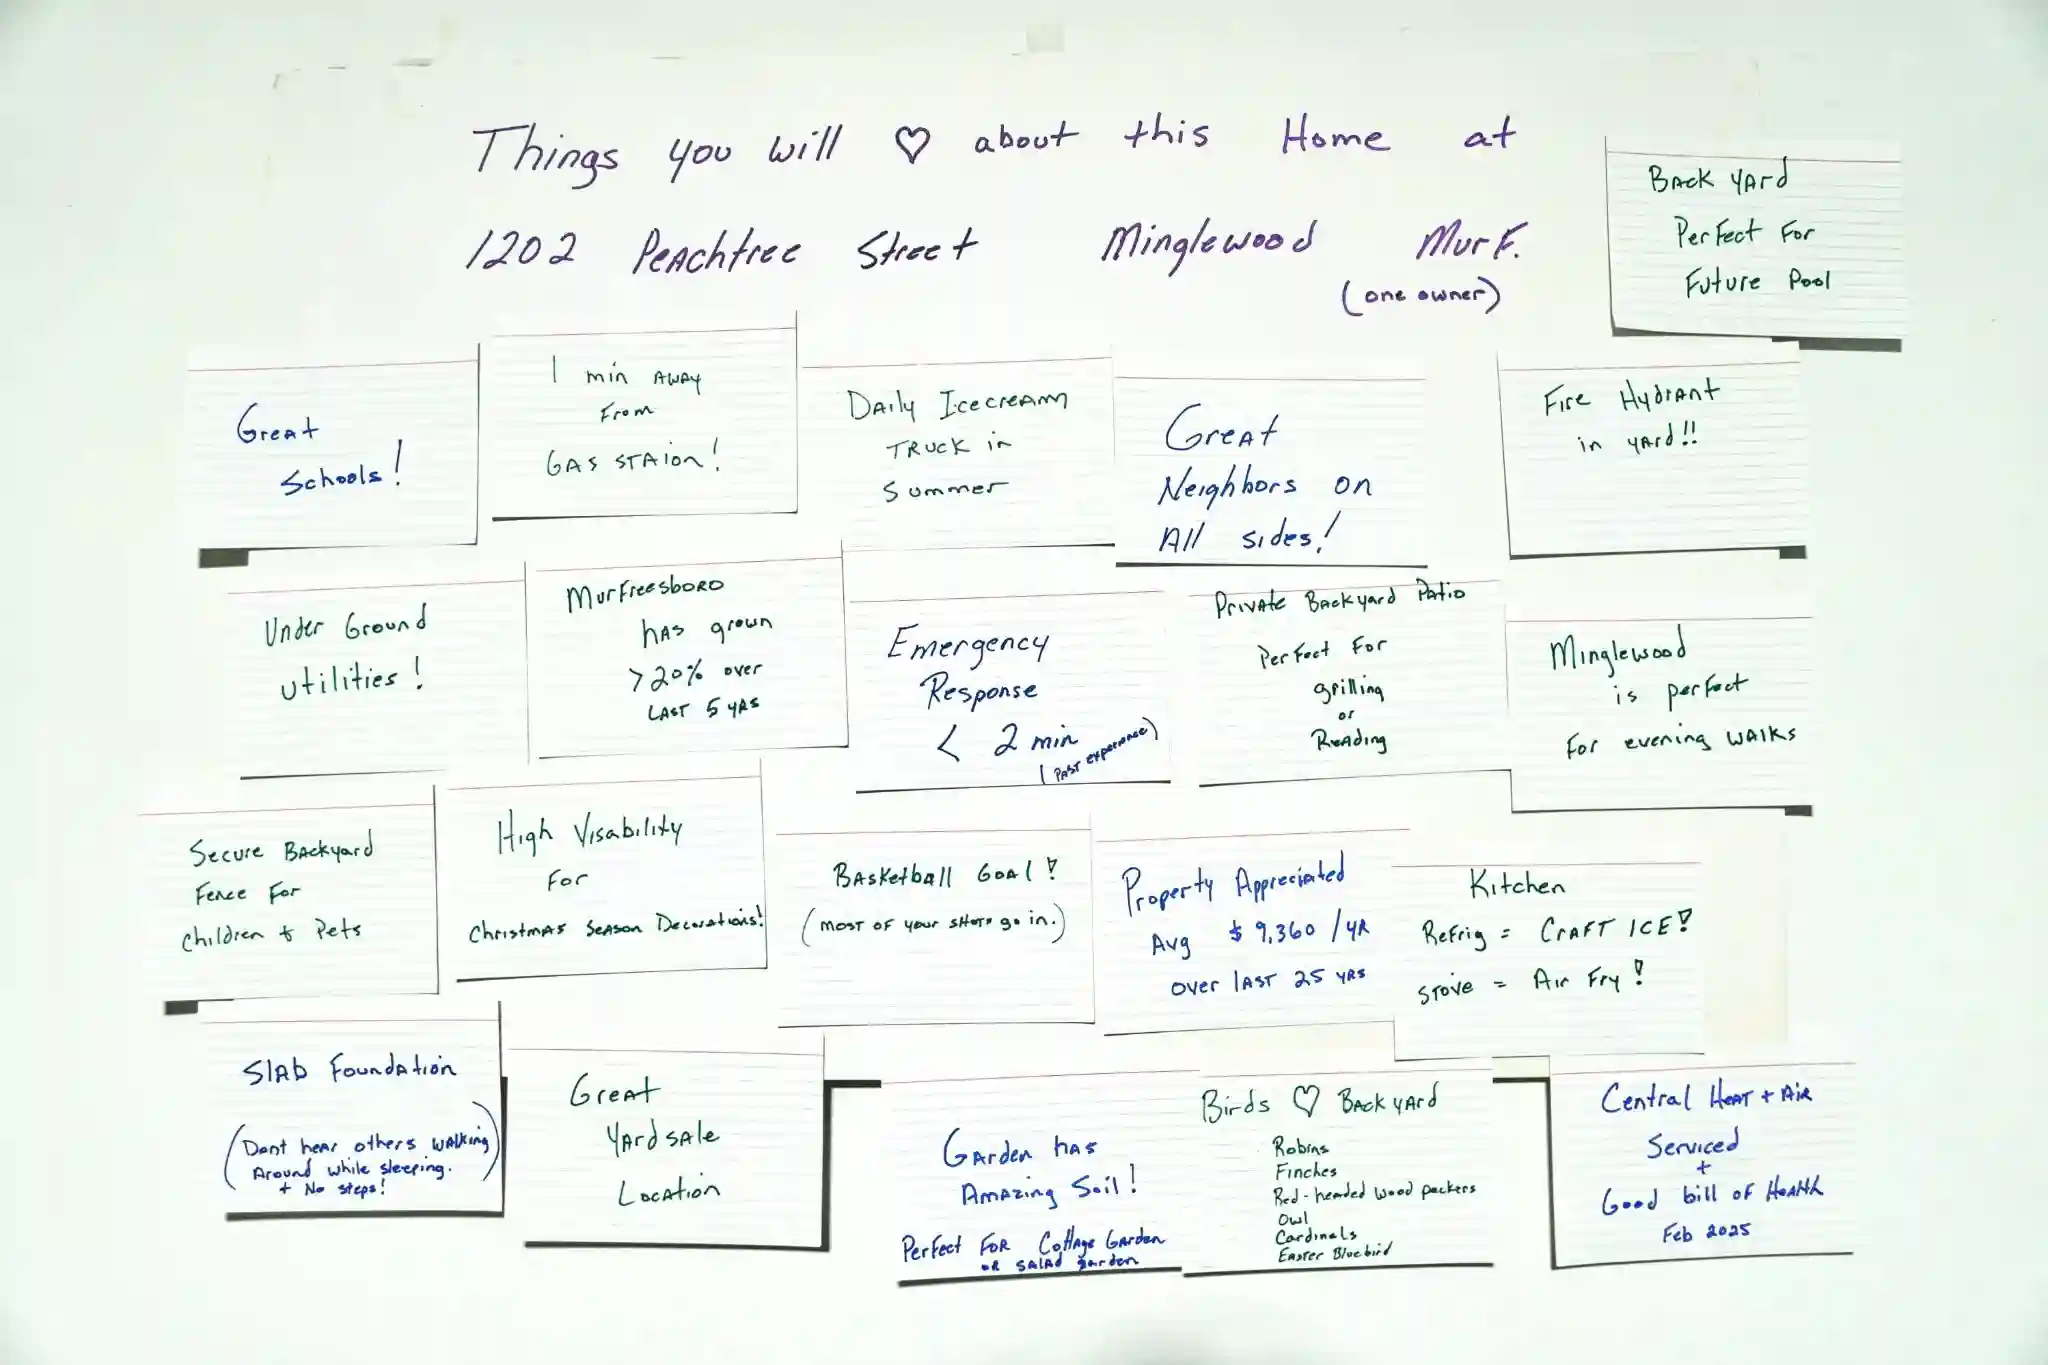 Things you will ♡ about this Home at
1202 Peachtree Street Minglewood Murf.
(one owner)
Back yard
Perfect for
Future Pool
Great
Schools!
1 min away
from
Gas staion!
Daily Icecream
Truck in
Summer
Great
Neighbors on
All sides!
Fire Hydrant
in yard!!
Under Ground
utilities!
Murfreesboro
has grown
>20% over
Last 5 yrs
Emergency
Response
< 2 min
(past experience)
Private Backyard Patio
Perfect for
grilling
or
Reading
Minglewood
is perfect
for evening walks
Secure Backyard
Fence for
Children + Pets
High Visability
for
Christmas Season Decorations!
Basketball Goal!
(most of your shots go in.)
Property Appreciated
Avg $ 9,360 /yr
over last 25 yrs
Kitchen
Refrig = CRAFT ICE!
Stove = Air Fry!
Slab Foundation
(Dont hear others walking
Around while sleeping.
+ No steps!)
Great
Yardsale
Location
Garden has
Amazing Soil!
Perfect for Cottage Garden
or salad garden
Birds ♡ Backyard
Robins
Finches
Red-headed wood peckers
Owl
Cardinals
Easter Bluebird
Central Heat + Air
Serviced
+
Good bill of Health
Feb 2025